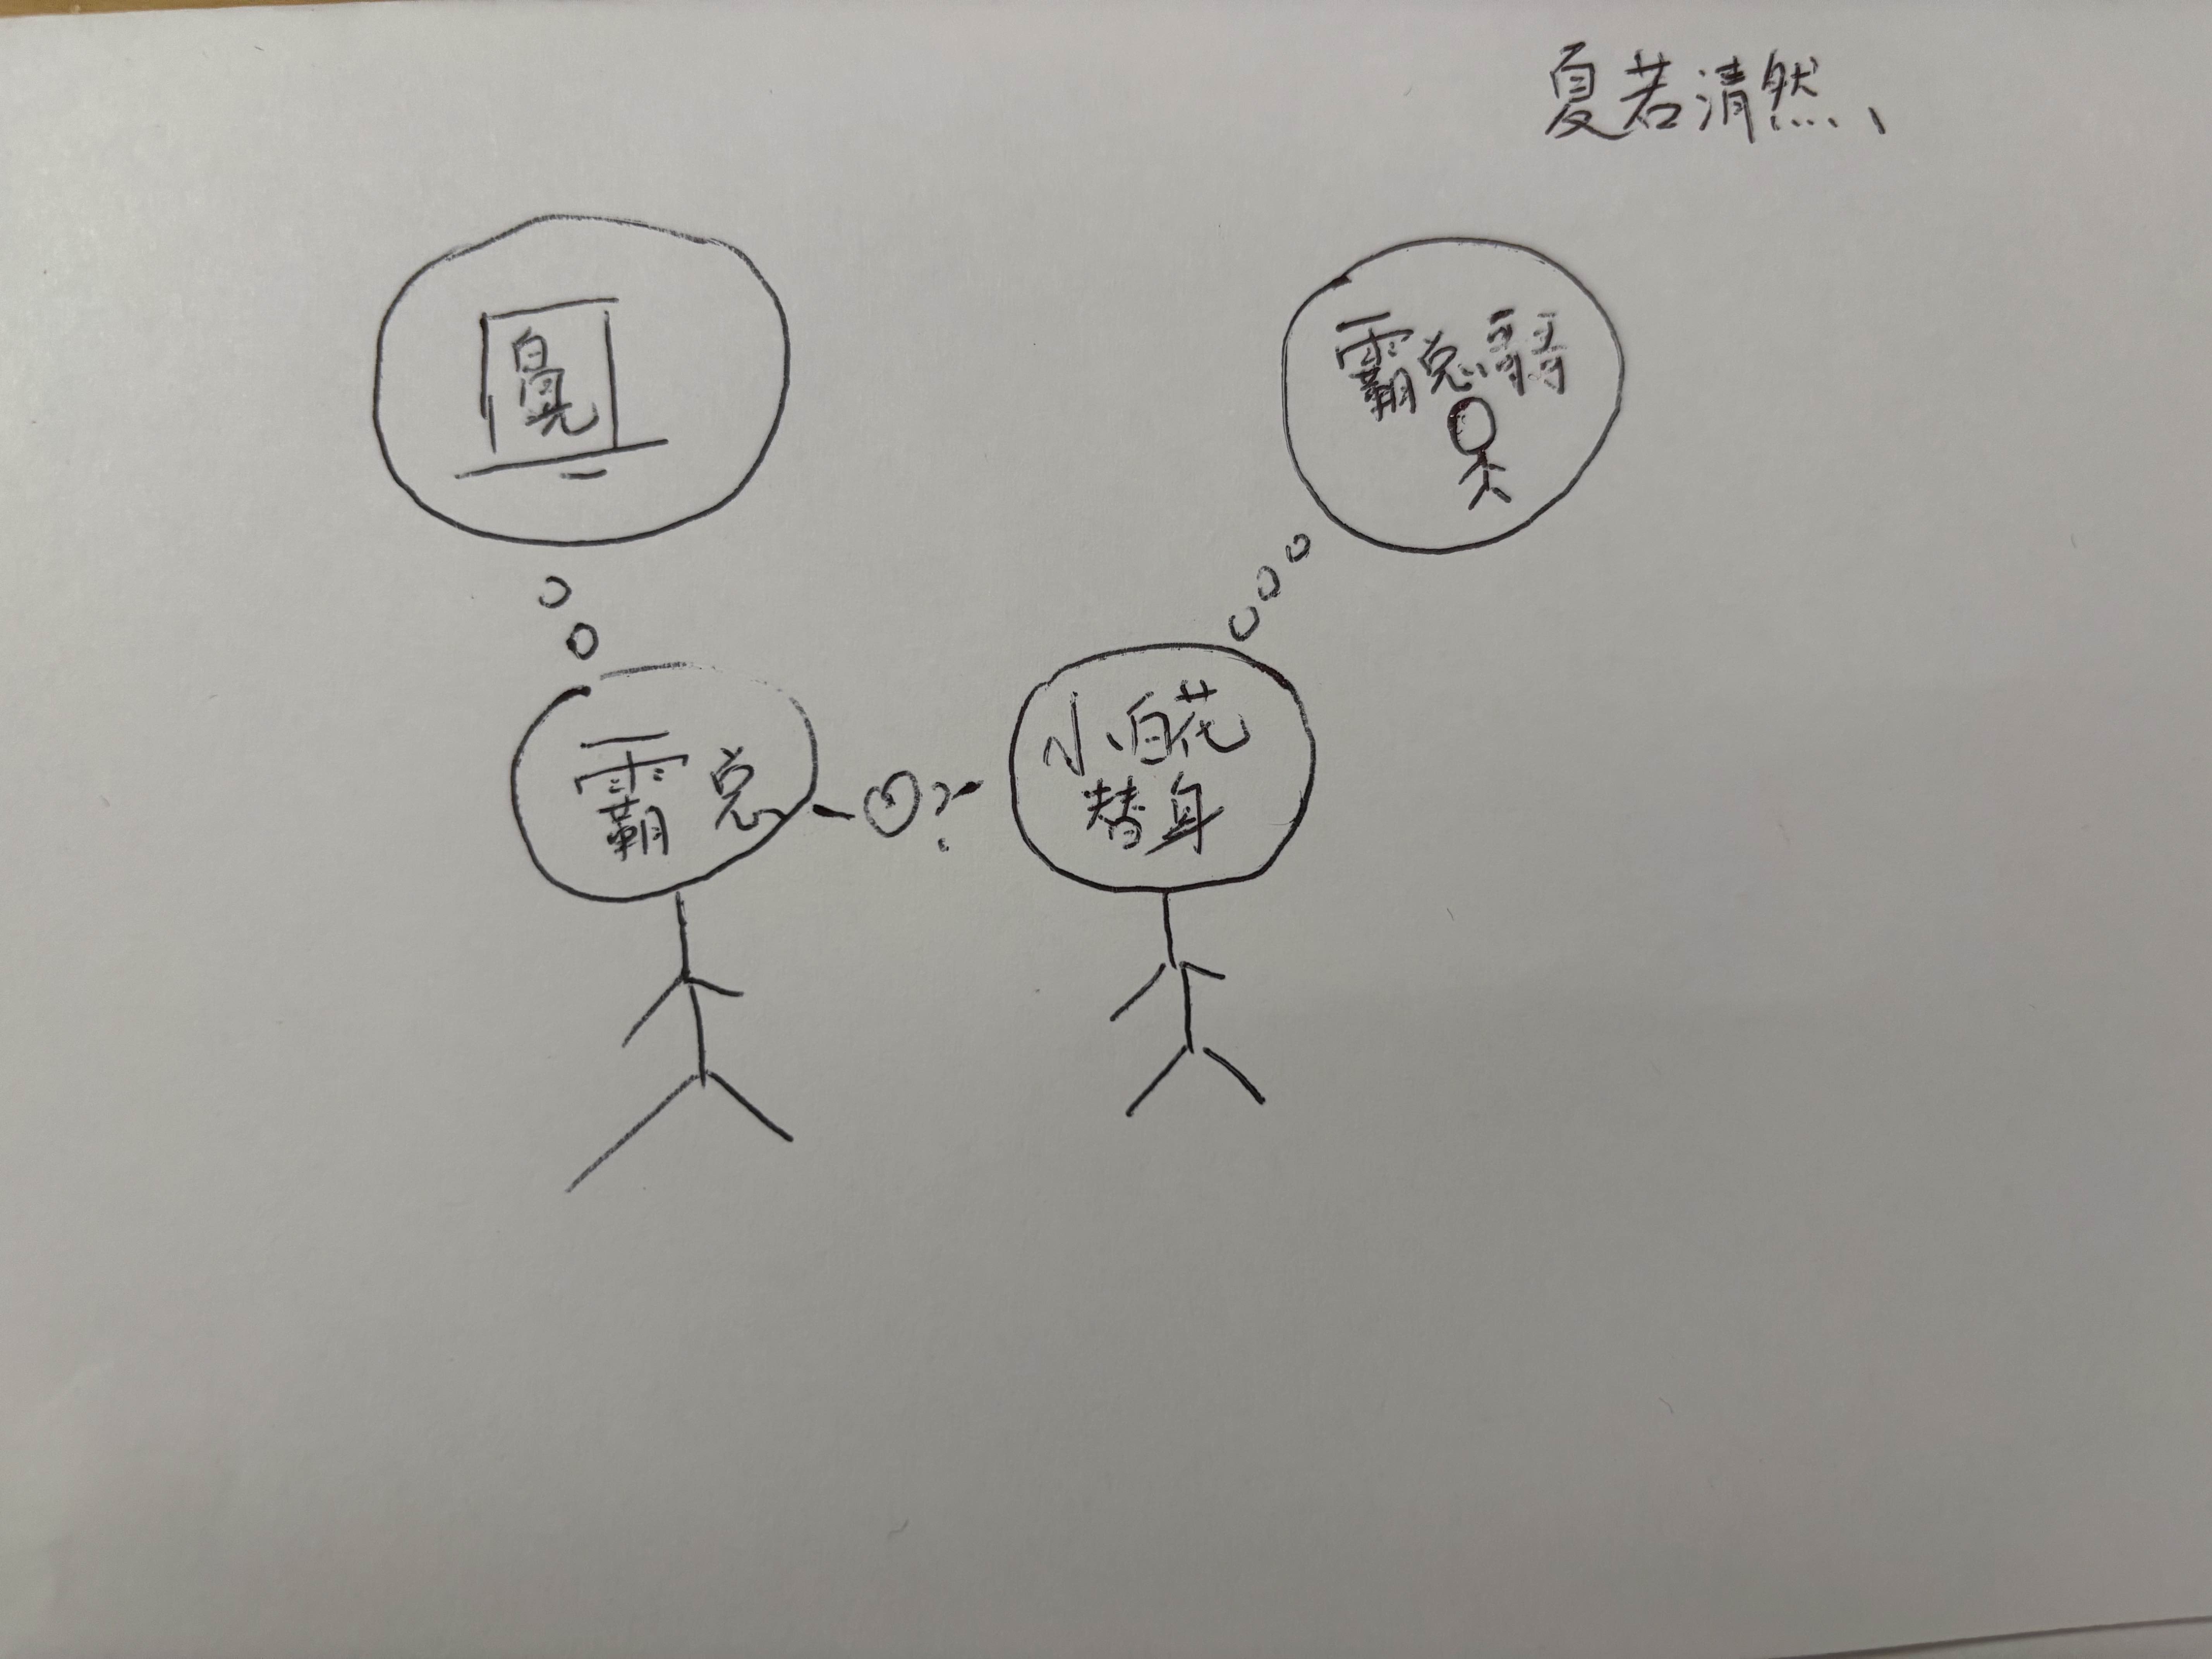 夏若清然、
白月光
霸总哥哥
霸总
?
小白花
替身